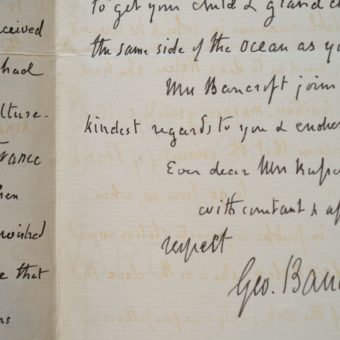 ceived
had
lture.
rance
hen
wished
e that
rs
to get your child & grand c
the same side of the ocean as yo
Mrs Bancroft join
kindest regards to you &
Ever dear Mrs
with constant & af
respect
Geo. Banc